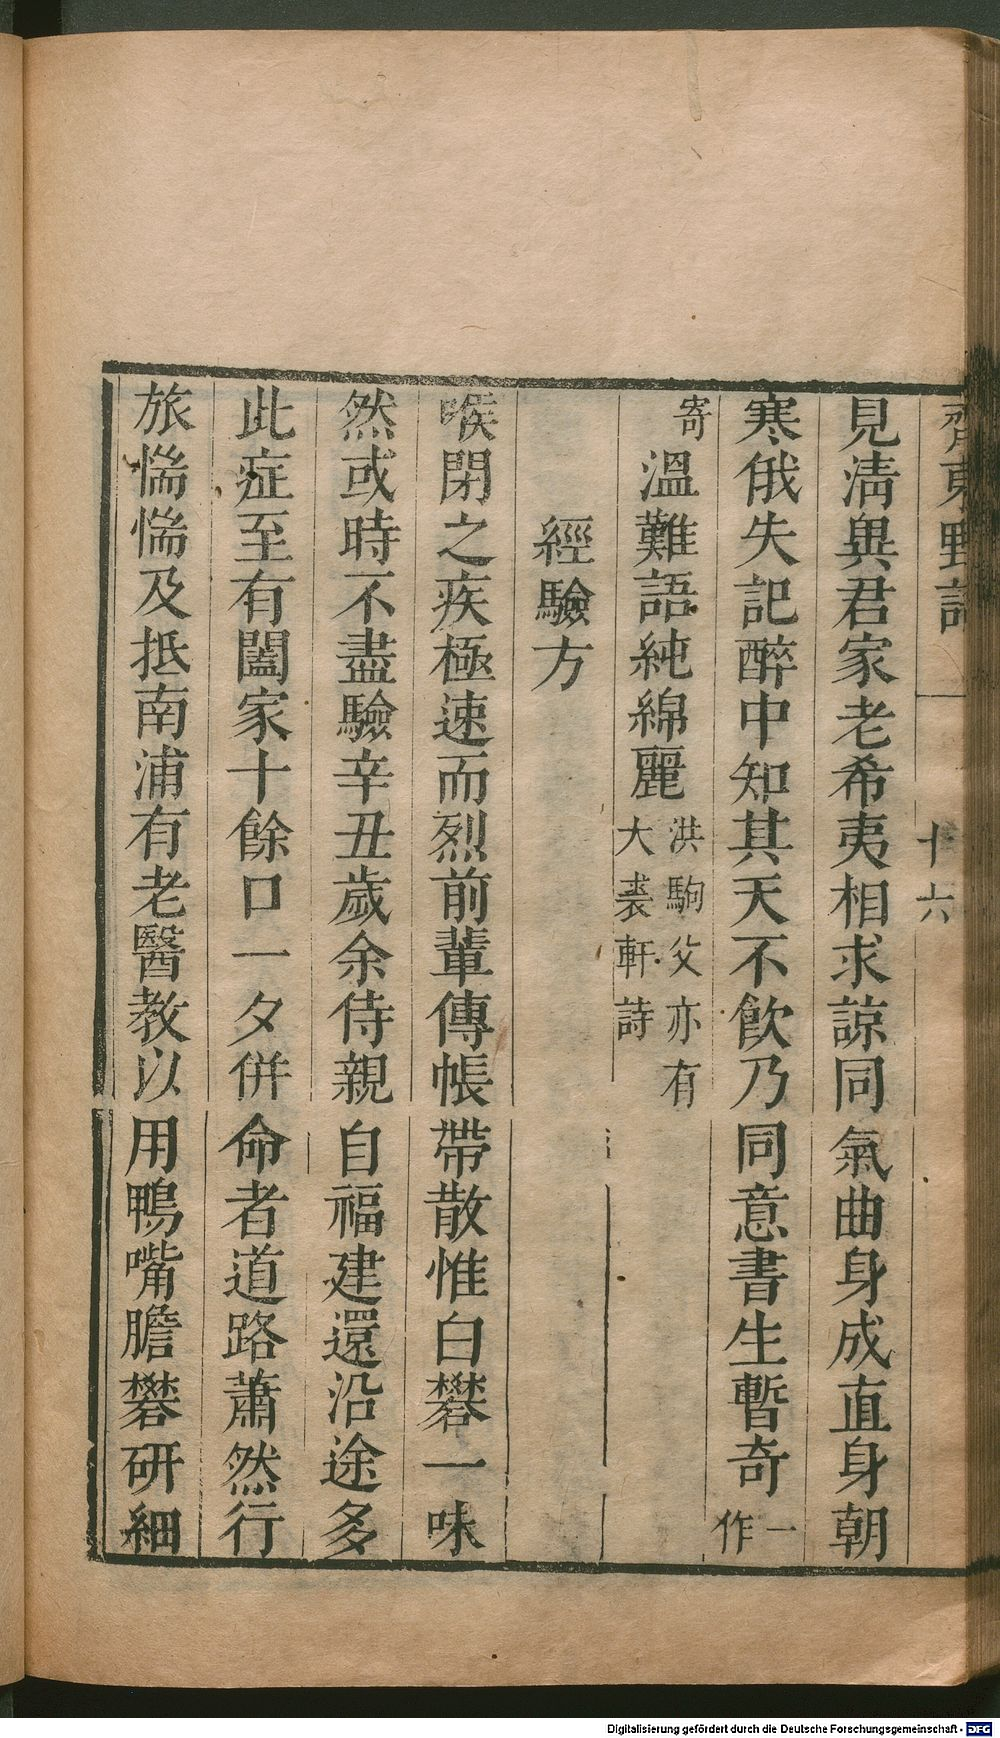 齊東野語
十六
見淸與君家老希夷相求諒同氣曲身成直身朝
寒俄失記醉中知其天不飮乃同意書生暫奇一作
寄溫難語純綿麗洪駒父亦有大裘軒詩
經驗方
喉閉之疾極速而烈前輩傳帳帶散惟白礬一味
然或時不盡驗辛丑歲余侍親自福建還沿途多
此症至有闔家十餘口一夕併命者道路蕭然行
旅惴惴及抵南浦有老醫教以用鴨嘴膽礬研細
Digitalisierung gefördert durch die Deutsche Forschungsgemeinschaft - DFG